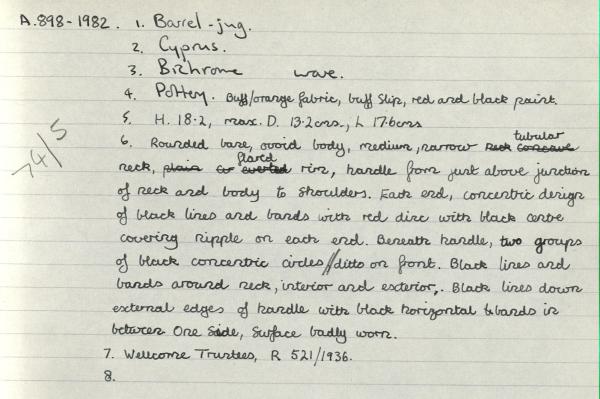 A.898-1982. 1. Barrel-jug.
2. Cyprus.
3. Bichrome ware.
4. Pottery. Buff/orange fabric, buff slip, red and black paint.
5. H. 18.2, max. D. 13.2cms., L 17.6cms
74/5
6. Rounded base, ovoid body, medium, narrow neck concave tubular
neck, plain or everted flared rim, handle from just above junction
of neck and body to shoulders. Each end, concentric design
of black lines and bands with red disc with black centre
covering nipple on each end. Beneath handle, two groups
of black concentric circles//ditto on front. Black lines and
bands around neck, interior and exterior,. Black lines down
external edges of handle with black horizontal bands in
between. One side, surface badly worn.
7. Wellcome Trustees, R 521/1936.
8.